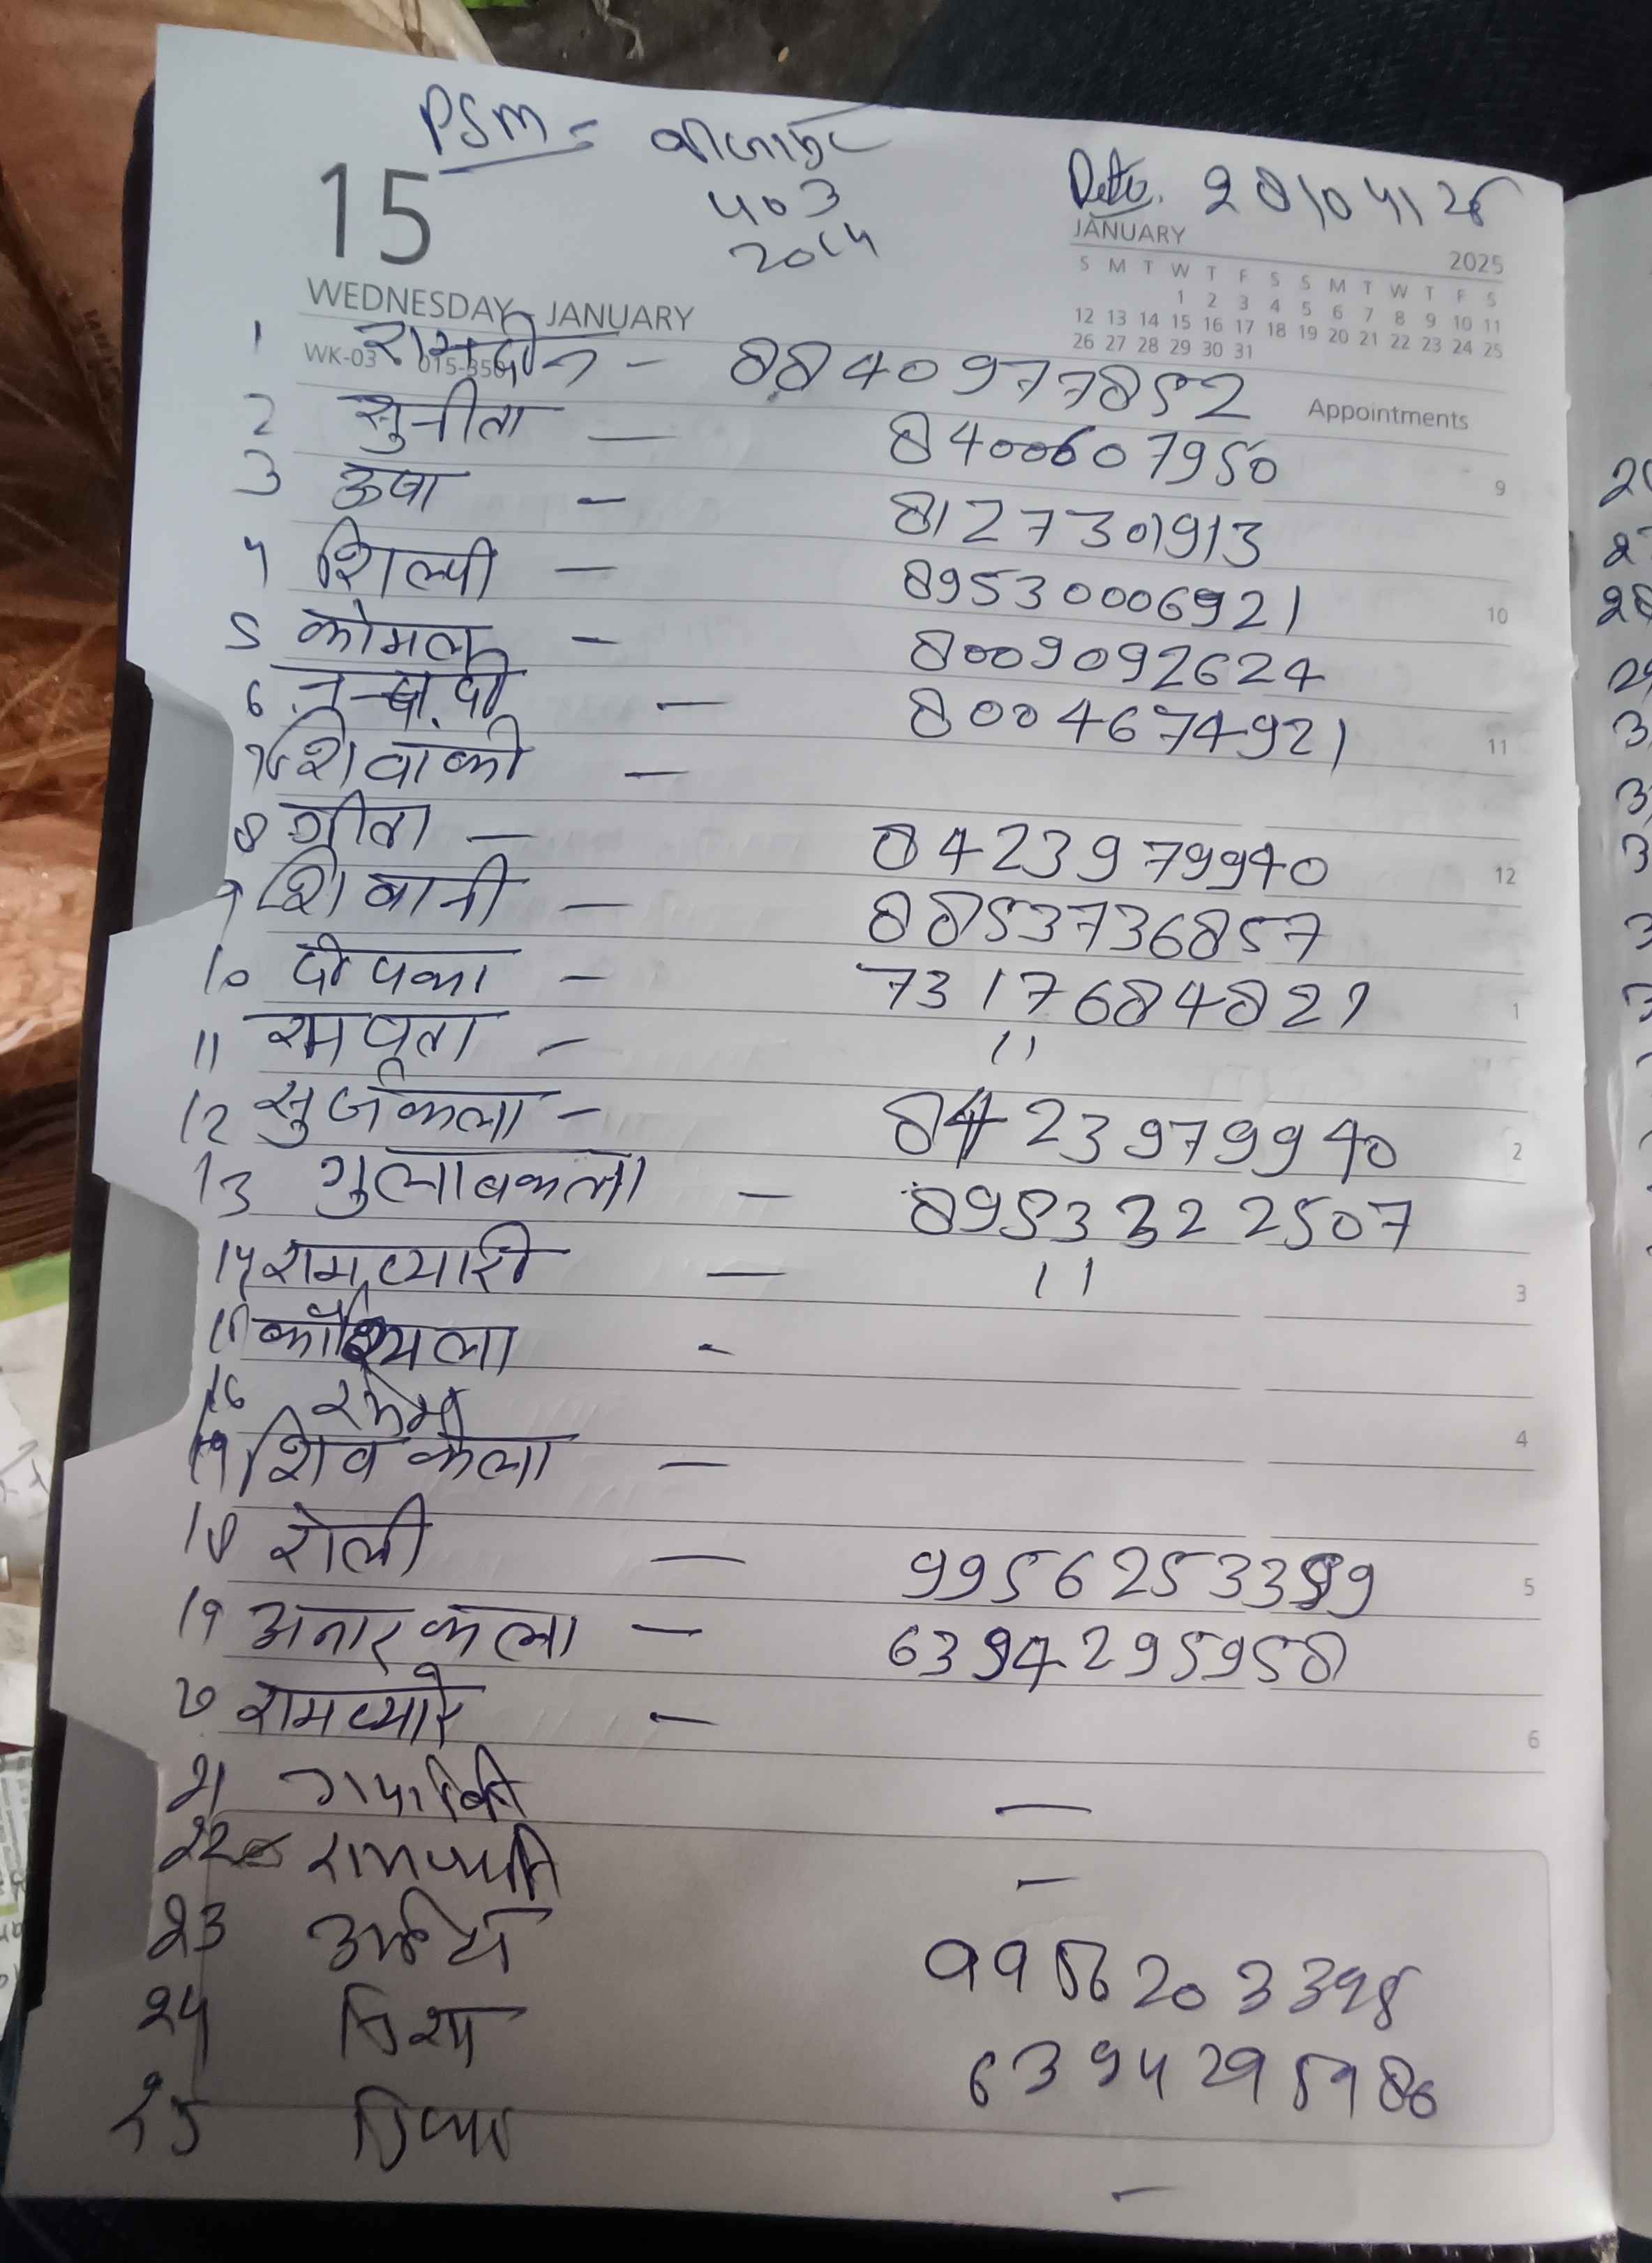 PSM =
403
2014
Date. 28/04/25
15
JANUARY 2025
S M T W T F S S M T W T F S
1 2 3 4 5 6 7 8 9 10 11
12 13 14 15 16 17 18 19 20 21 22 23 24 25
26 27 28 29 30 31
WEDNESDAY - JANUARY
WK-03 015-350
Appointments
1 रामदीन - 8840977852
2 सुनीता — 8400607950
9
3 ऊषा - 8127301913
4 शिल्पी — 89530006921
10
5 कोमल - 8009092624
6 — 8004674921
11
7 शिवाकी —
8 गीता — 8423979940
12
9 शिवानी — 8853736857
10 दीपका - 7317684821
1
11 रामपूता - 11
12 सुर्जकला - 8423979940
2
13 गुलाबकला — 8953322507
14 रामप्यारी — 11
3
15 -
16
4
17 शिवकला —
18 रोली — 9956253389
5
19 अनारकला — 6394295958
20 रामप्यारे —
6
21 —
22 —
23 9956203398
24 6394295986
25 —